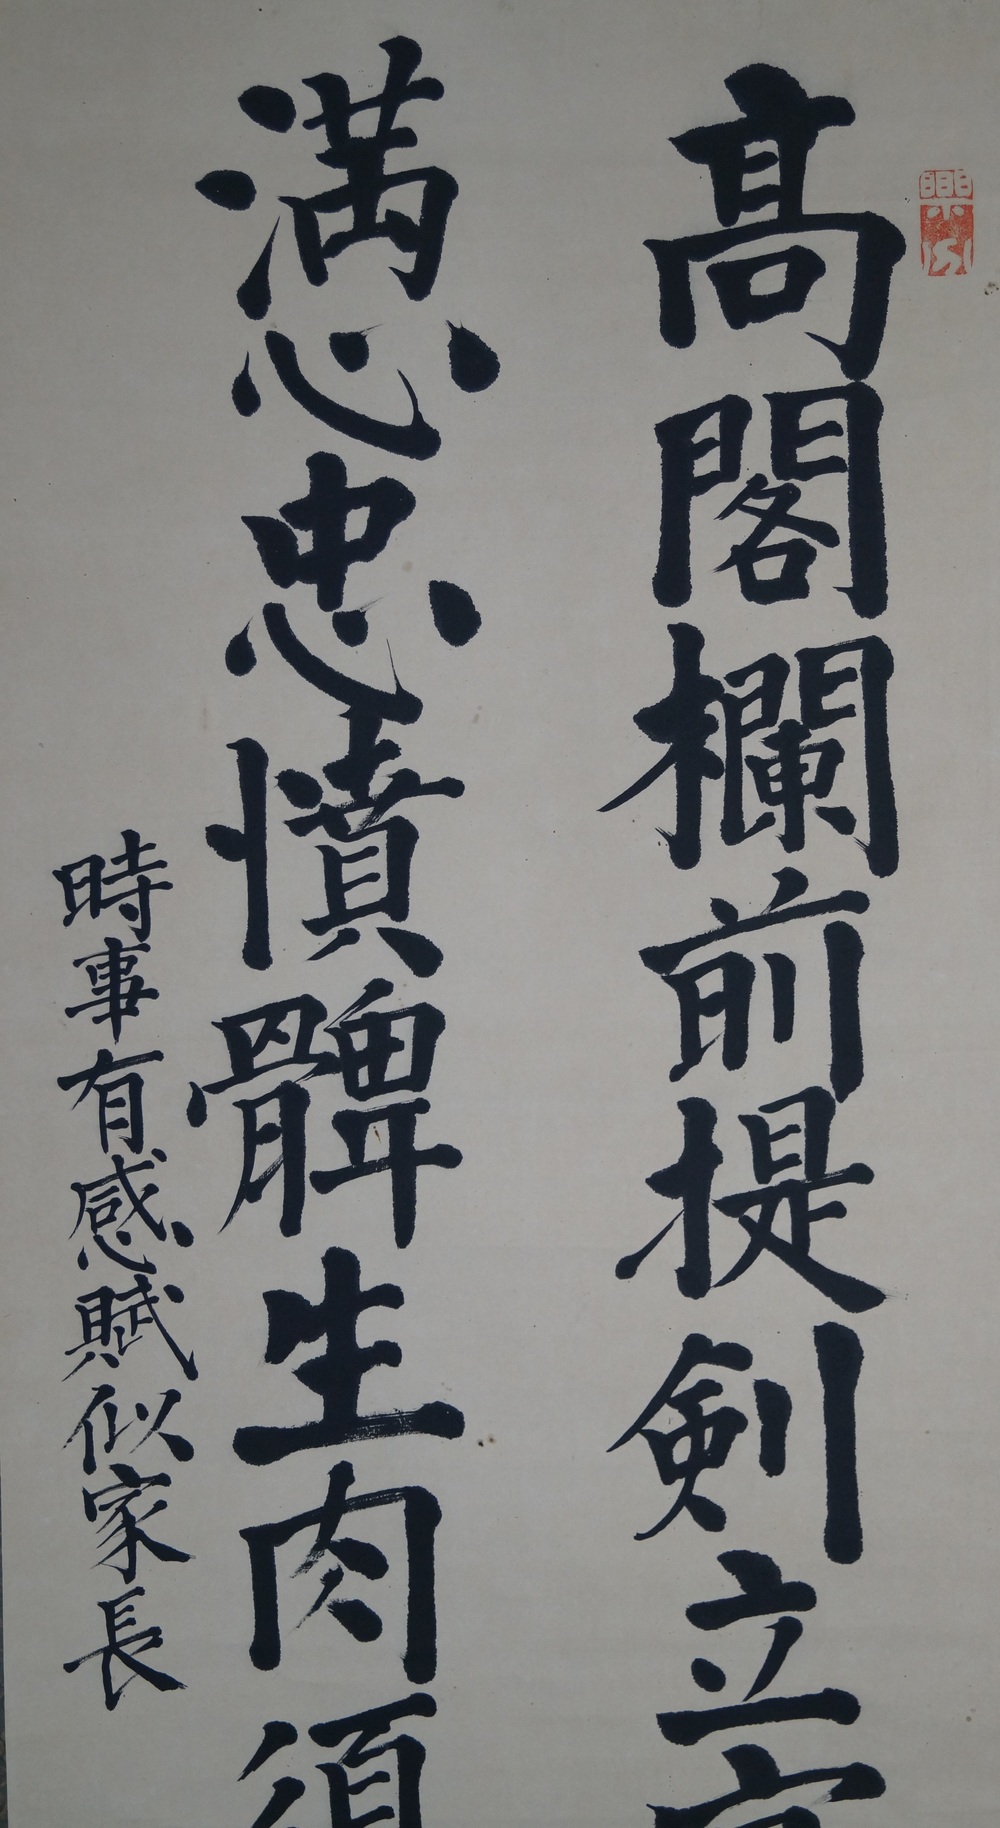 高閣欄前提劍立
滿心忠憤髀生肉須
時事有感賦似家長